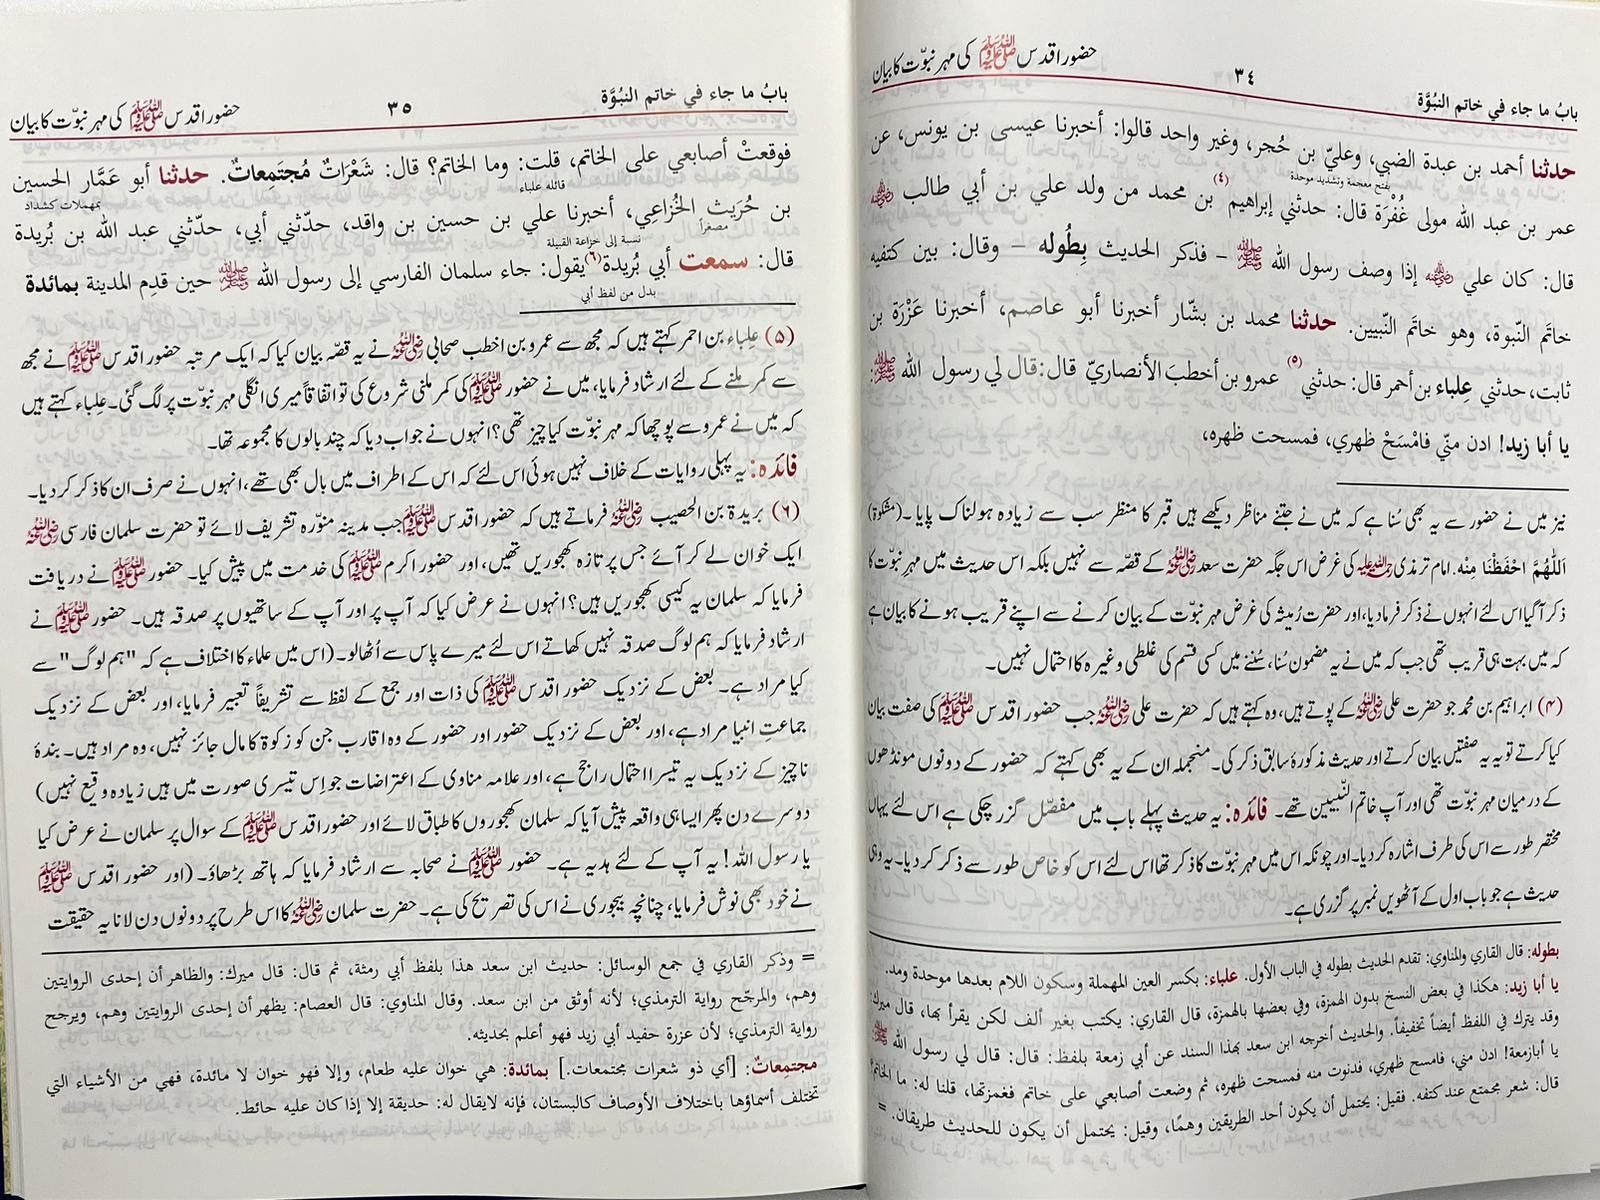 حضور اقدس ﷺ کی مہر نبوّت کا بیان
٣٤
بابُ ما جاء في خاتم النبُوَّة
حدثنا أحمد بن عبدة الضبي، وعليّ بن حُجر، وغير واحد قالوا: أخبرنا عيسى بن يونس، عن
بفتح معجمة وتشديد موحدة
عمر بن عبد الله مولى غُفْرَة قال: حدثني إبراهيم(٤) بن محمد من ولد علي بن أبي طالب ؓ
قال: كان علي ؓ إذا وصف رسول الله ﷺ - فذكر الحديث بِطُوله – وقال: بين كتفيه
خاتَم النّبوة، وهو خاتَم النّبيين. حدثنا محمد بن بشّار أخبرنا أبو عاصم، أخبرنا عَزْرَة بن
ثابت، حدثني عِلباء بن أحمر قال: حدثني(٥) عمرو بن أخطبَ الأنصاريّ قال: قال لي رسول الله ﷺ:
يا أبا زيد! ادن منّي فامْسَحْ ظهري، فمسحت ظهره،
نیز میں نے حضور سے یہ بھی سُنا ہے کہ میں نے جتنے مناظر دیکھے ہیں قبر کا منظر سب سے زیادہ ہولناک پایا۔ (مشکوٰۃ)
اَللّٰهُمَّ احْفَظْنَا مِنْه۔ امام ترمذی رحمۃ اللہ علیہ کی غرض اس جگہ حضرت سعد ؓ کے قصّہ سے نہیں بلکہ اس حدیث میں مہرِ نبوّت کا
ذکر آ گیا اس لئے انہوں نے ذکر فرما دیا، اور حضرت رُمیثہ کی غرض مہر نبوّت کے بیان کرنے سے اپنے قریب ہونے کا بیان ہے
کہ میں بہت ہی قریب تھی جب کہ میں نے یہ مضمون سُنا، سُننے میں کسی قسم کی غلطی وغیرہ کا احتمال نہیں۔
(۴) ابراہیم بن محمد جو حضرت علی ؓ کے پوتے ہیں، وہ کہتے ہیں کہ حضرت علی ؓ جب حضور اقدس ﷺ کی صفت بیان
کیا کرتے تو یہ یہ صفتیں بیان کرتے اور حدیث مذکورۂ سابق ذکر کی۔ منجملہ ان کے یہ بھی کہتے کہ حضور کے دونوں مونڈھوں
کے درمیان مہر نبوّت تھی اور آپ خاتم النّبیین تھے۔ فائدہ: یہ حدیث پہلے باب میں مفصّل گزر چکی ہے اس لئے یہاں
مختصر طور سے اس کی طرف اشارہ کر دیا۔ اور چونکہ اس میں مہر نبوّت کا ذکر تھا اس لئے اس کو خاص طور سے ذکر کر دیا۔ یہ وہی
حدیث ہے جو باب اول کے آٹھویں نمبر پر گزری ہے۔
بطوله: قال القاري والمناوي: تقدم الحديث بطوله في الباب الأول. علباء: بكسر العين المهملة وسكون اللام بعدها موحدة ومد.
يا أبا زيد: هكذا في بعض النسخ بدون الهمزة، وفي بعضها بالهمزة، قال القاري: يكتب بغير ألف لكن يقرأ بها، قال ميرك:
وقد يترك في اللفظ أيضاً تخفيفاً. والحديث أخرجه ابن سعد بهذا السند عن أبي زمعة بلفظ: قال: قال لي رسول الله ﷺ:
يا أبازمعة! ادن مني، فامسح ظهري، فدنوت منه فمسحت ظهره، ثم وضعت أصابعي على خاتم فغمزتها، قلنا له: ما الخاتم؟
قال: شعر مجتمع عند كتفه. فقيل: يحتمل أن يكون أحد الطريقين وهمًا، وقيل: يحتمل أن يكون للحديث طريقان. =
حضور اقدس ﷺ کی مہر نبوّت کا بیان
٣٥
بابُ ما جاء في خاتم النبُوَّة
فوقعتْ أصابعي على الخاتم، قلت: وما الخاتم؟ قال: شَعْرَاتٌ مُجتَمِعاتٌ. حدثنا أبو عَمَّار الحسين
قائله علباء
بمهملات كشداد
بن حُرَيث الخُزاعِي، أخبرنا علي بن حسين بن واقد، حدّثني أبي، حدّثني عبد الله بن بُريدة
مصغراً
نسبة إلى خزاعة القبيلة
قال: سمعت أبي بُريدة(٦) يقول: جاء سلمان الفارسي إلى رسول الله ﷺ حين قدِم المدينة بمائدة
بدل من لفظ أبي
(۵) عِلباء بن احمر کہتے ہیں کہ مجھ سے عمرو بن اخطب صحابی ؓ نے یہ قصّہ بیان کیا کہ ایک مرتبہ حضور اقدس ﷺ نے مجھ
سے کمر ملنے کے لئے ارشاد فرمایا، میں نے حضور ﷺ کی کمر ملنی شروع کی تو اتفاقاً میری انگلی مہر نبوّت پر لگ گئی۔ عِلباء کہتے ہیں
کہ میں نے عمرو سے پوچھا کہ مہر نبوّت کیا چیز تھی؟ انہوں نے جواب دیا کہ چند بالوں کا مجموعہ تھا۔
فائدہ: یہ پہلی روایات کے خلاف نہیں ہوئی اس لئے کہ اس کے اطراف میں بال بھی تھے، انہوں نے صرف ان کا ذکر کر دیا۔
(۶) بریدۃ بن الحصیب ؓ فرماتے ہیں کہ حضور اقدس ﷺ جب مدینہ منوّرہ تشریف لائے تو حضرت سلمان فارسی ؓ
ایک خوان لے کر آئے جس پر تازہ کھجوریں تھیں، اور حضور اکرم ﷺ کی خدمت میں پیش کیا۔ حضور ﷺ نے دریافت
فرمایا کہ سلمان یہ کیسی کھجوریں ہیں؟ انہوں نے عرض کیا کہ آپ پر اور آپ کے ساتھیوں پر صدقہ ہیں۔ حضور ﷺ نے
ارشاد فرمایا کہ ہم لوگ صدقہ نہیں کھاتے اس لئے میرے پاس سے اُٹھالو۔ (اس میں علماء کا اختلاف ہے کہ "ہم لوگ" سے
کیا مراد ہے۔ بعض کے نزدیک حضور اقدس ﷺ کی ذات اور جمع کے لفظ سے تشریفاً تعبیر فرمایا، اور بعض کے نزدیک
جماعتِ انبیا مراد ہے، اور بعض کے نزدیک حضور اور حضور کے وہ اقارب جن کو زکوٰۃ کا مال جائز نہیں، وہ مراد ہیں۔ بندۂ
ناچیز کے نزدیک یہ تیسرا احتمال راجح ہے، اور علامہ مناوی کے اعتراضات جو اِس تیسری صورت میں ہیں زیادہ وقیع نہیں)
دوسرے دن پھر ایسا ہی واقعہ پیش آیا کہ سلمان کھجوروں کا طباق لائے اور حضور اقدس ﷺ کے سوال پر سلمان نے عرض کیا
یا رسول اللہ! یہ آپ کے لئے ہدیہ ہے۔ حضور ﷺ نے صحابہ سے ارشاد فرمایا کہ ہاتھ بڑھاؤ۔ (اور حضور اقدس ﷺ
نے خود بھی نوش فرمایا، چنانچہ بیجوری نے اس کی تصریح کی ہے۔ حضرت سلمان ؓ کا اس طرح پر دونوں دن لانا یہ حقیقت
= وذكر القاري في جمع الوسائل: حديث ابن سعد هذا بلفظ أبي رمثة، ثم قال: قال ميرك: والظاهر أن إحدى الروايتين
وهم، والمرجّح رواية الترمذي؛ لأنه أوثق من ابن سعد. وقال المناوي: قال العصام: يظهر أن إحدى الروايتين وهم، ويرجح
رواية الترمذي؛ لأن عزرة حفيد أبي زيد فهو أعلم بحديثه.
مجتمِعاتٌ: [أي ذو شعرات مجتمعات.] بمائدة: هي خوان عليه طعام، وإلا فهو خوان لا مائدة، فهي من الأشياء التي
تختلف أسماؤها باختلاف الأوصاف كالبستان، فإنه لايقال له: حديقة إلا إذا كان عليه حائط.